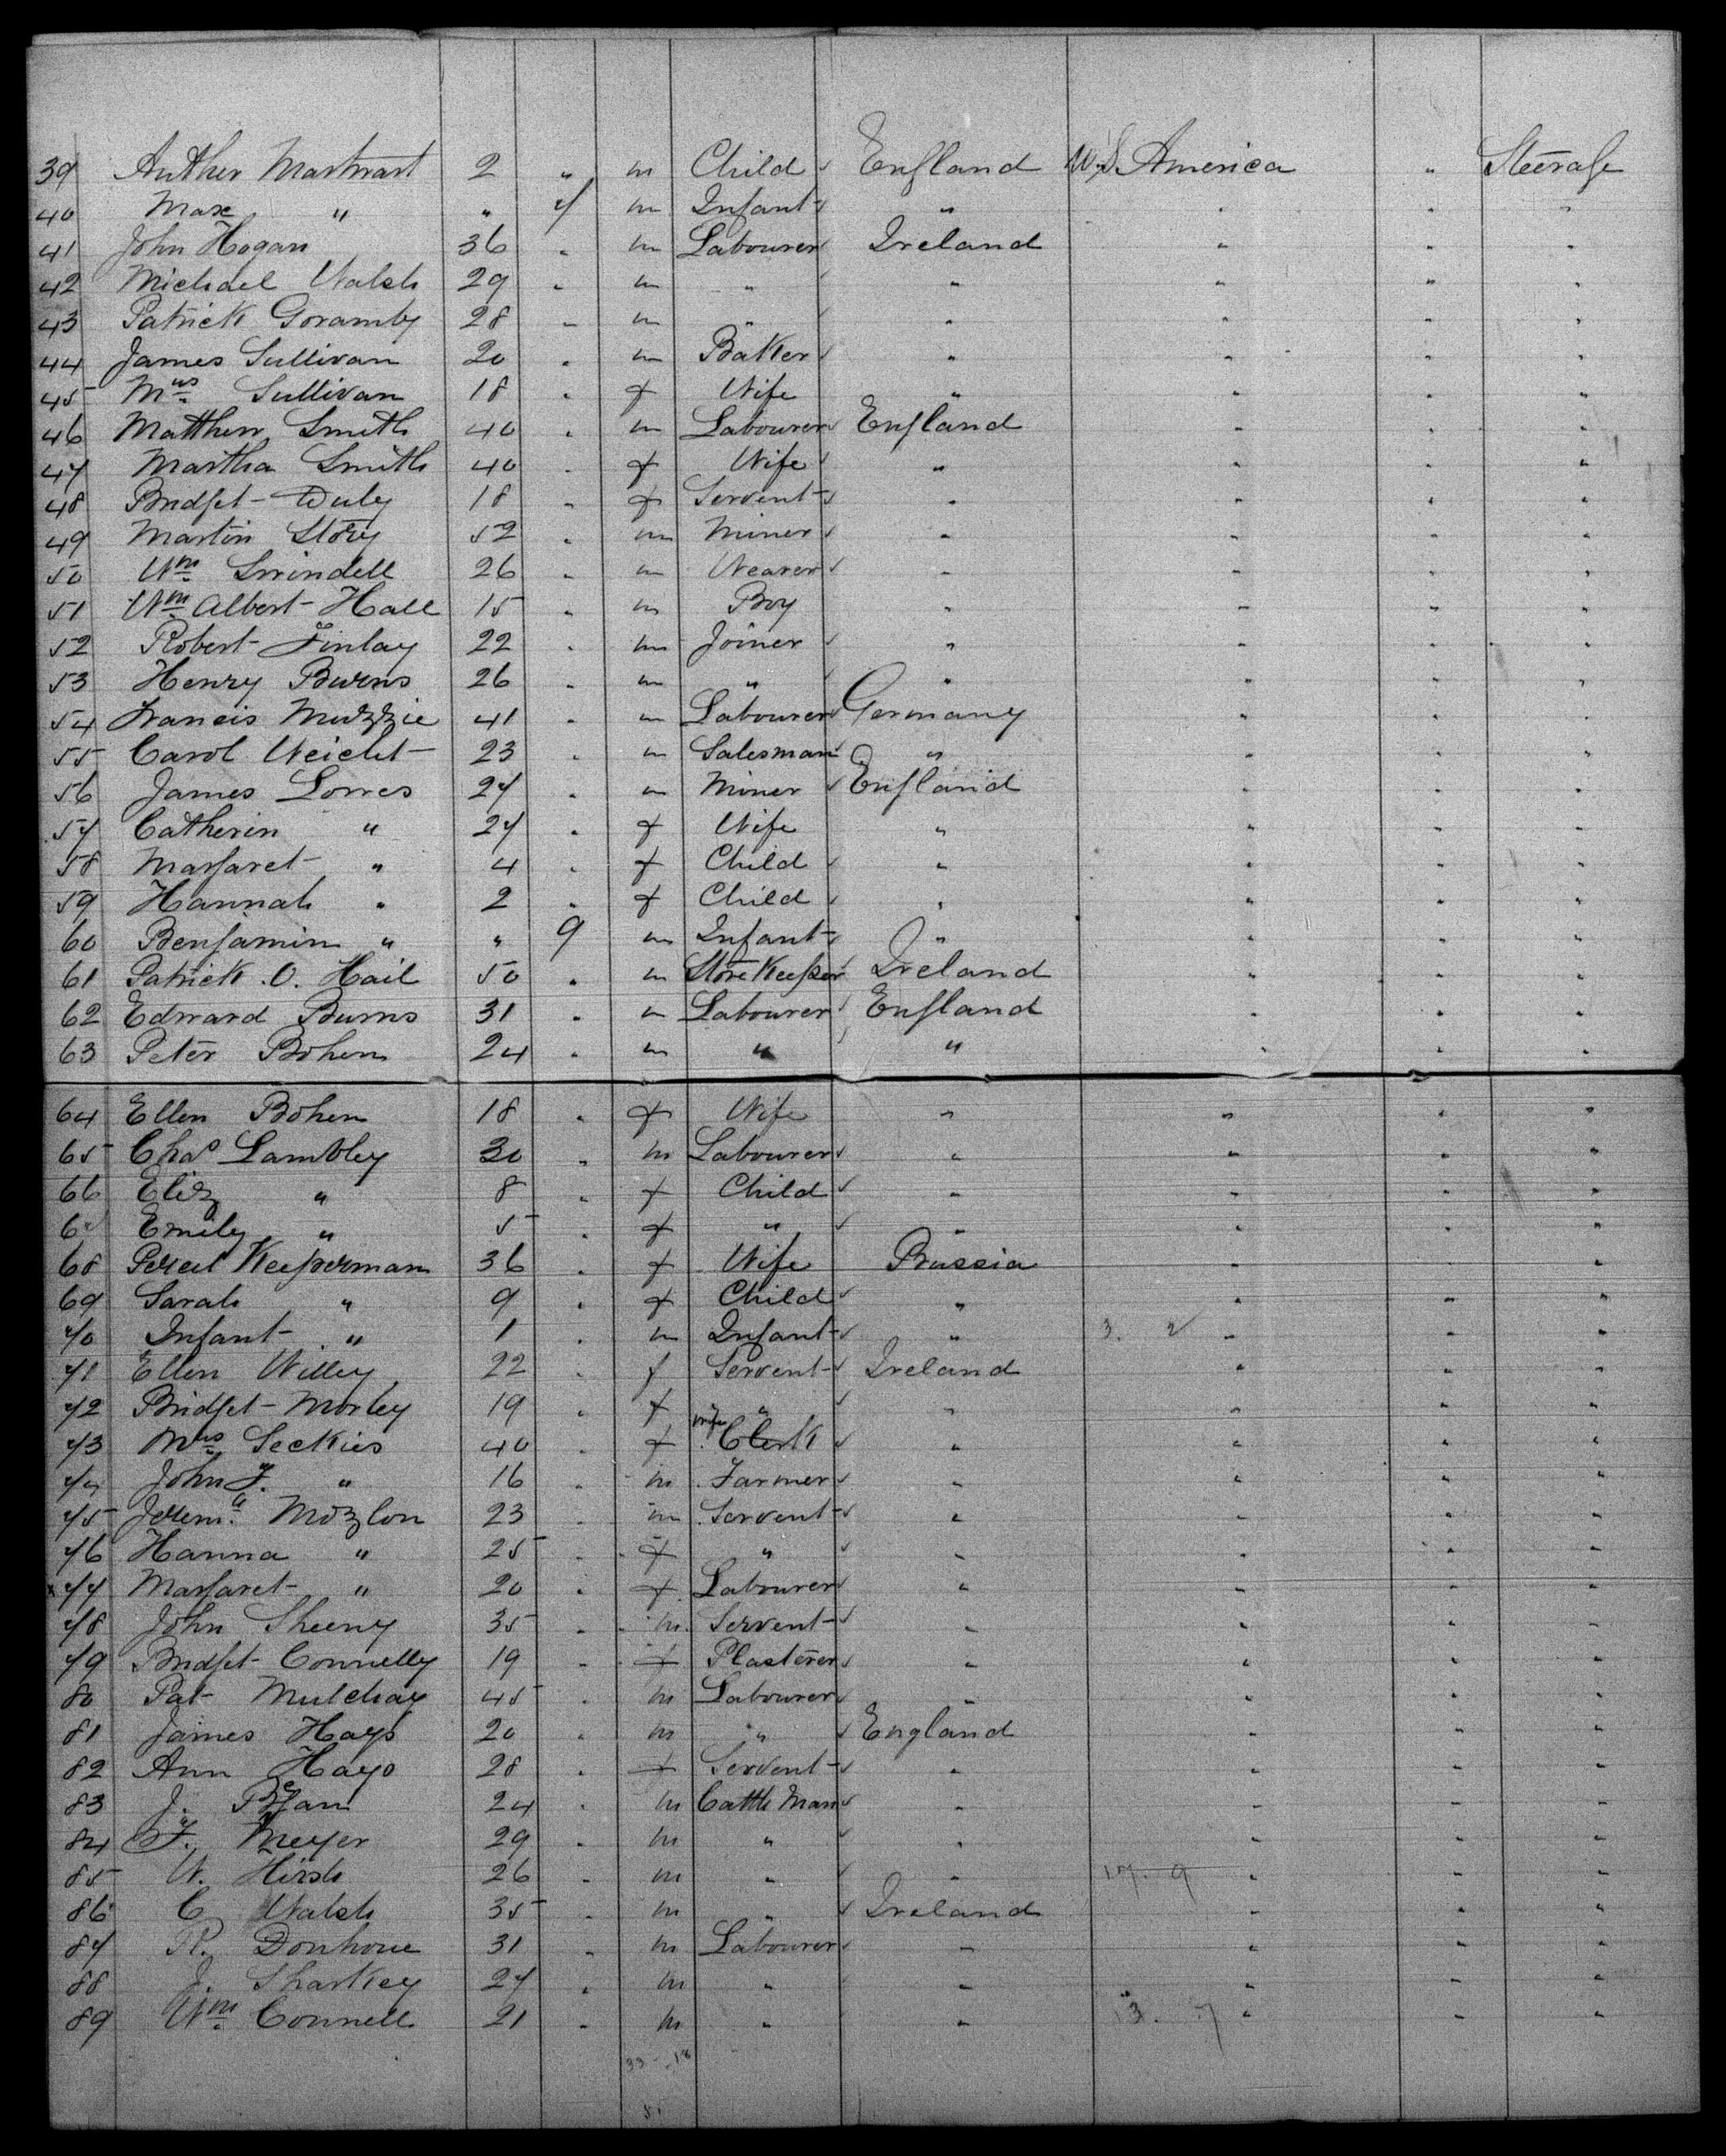 39 Auther Martrart 2 " m Child England U.S. America " Steerage
40 Max " " 7 m Infant " " " "
41 John Hogan 36 " m Labourer Ireland " " "
42 Michael Walsh 29 " m " " " " "
43 Patrick Goramby 28 " m " " " " "
44 James Sullivan 20 " m Baker " " " "
45 Mrs Sullivan 18 " f Wife " " " "
46 Matthew Smith 40 " m Labourer England " " "
47 Martha Smith 40 " f Wife " " " "
48 Bridget Duly 18 " f Servent " " " "
49 Martin Story 52 " m Miner " " " "
50 Wm Swindell 26 " m Weaver " " " "
51 Wm Albert Hall 15 " m Boy " " " "
52 Robert Finlay 22 " m Joiner " " " "
53 Henry Burns 26 " m " " " " "
54 Francis Muzzie 41 " m Labourer Germany " " "
55 Carol Weicht 23 " m Salesman " " " "
56 James Lowes 27 " m Miner England " " "
57 Catherin " 27 " f Wife " " " "
58 Margaret " 4 " f Child " " " "
59 Hannah " 2 " f Child " " " "
60 Benjamin " " 9 m Infant " " " "
61 Patrick O. Hail 50 " m Store Keeper Ireland " " "
62 Edward Burns 31 " m Labourer England " " "
63 Peter Bohen 24 " m " " " " "
64 Ellen Bohen 18 " f Wife " " " "
65 Chas Lambley 30 " m Labourer " " " "
66 Eliz " 8 " f Child " " " "
67 Emily " 5 " f " " " " "
68 Keeperman 36 " f Wife Prussia " " "
69 Sarah " 9 " f Child " " " "
70 Infant " 1 " m Infant " 3. 2 " " "
71 Ellen Willey 22 " f Servent Ireland " " "
72 Bridget Morley 19 " f " " " " "
73 Mrs Seckies 40 " f wife Clerk " " " "
74 John F. " 16 " m Farmer " " " "
75 Jerema. Mozlon 23 " m Servent " " " "
76 Hanna " 25 " f " " " " "
x 77 Margaret " 20 " f Labourer " " " "
78 John Sheeny 35 " m Servent " " " "
79 Bridget Connelly 19 " f Plasterer " " " "
80 Pat Mulchay 45 " m Labourer " " " "
81 James Hays 20 " m " England " " "
82 Ann Hays 28 " f Servent " " " "
83 J. 24 " m Cattle Man " " " "
84 F. Meyer 29 " m " " " " "
85 W. Hirsh 26 " m " " 17. 9 " " "
86 C Walsh 35 " m " Ireland " " "
87 R. Donhoue 31 " m Labourer " " " "
88 J. Sharkey 27 " m " " " " "
89 Wm Connell 21 " m " " 13. 7 " " "
33 - 18
51